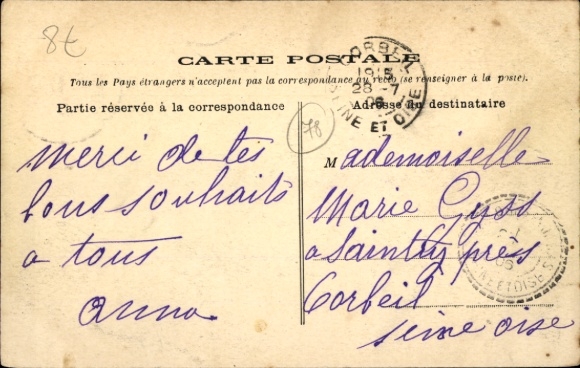 8t
CARTE POSTALE
Tous les Pays étrangers n'acceptent pas la correspondance au recto (se renseigner à la poste).
Partie réservée à la correspondance
Adresse du destinataire
CORBEIL
28 -7
SEINE ET OISE
78
merci de tes
bons souhaits
a tous
anna.
Mademoiselle
Marie Gyss
a Saintry près
Corbeil
seine oise
ET OISE